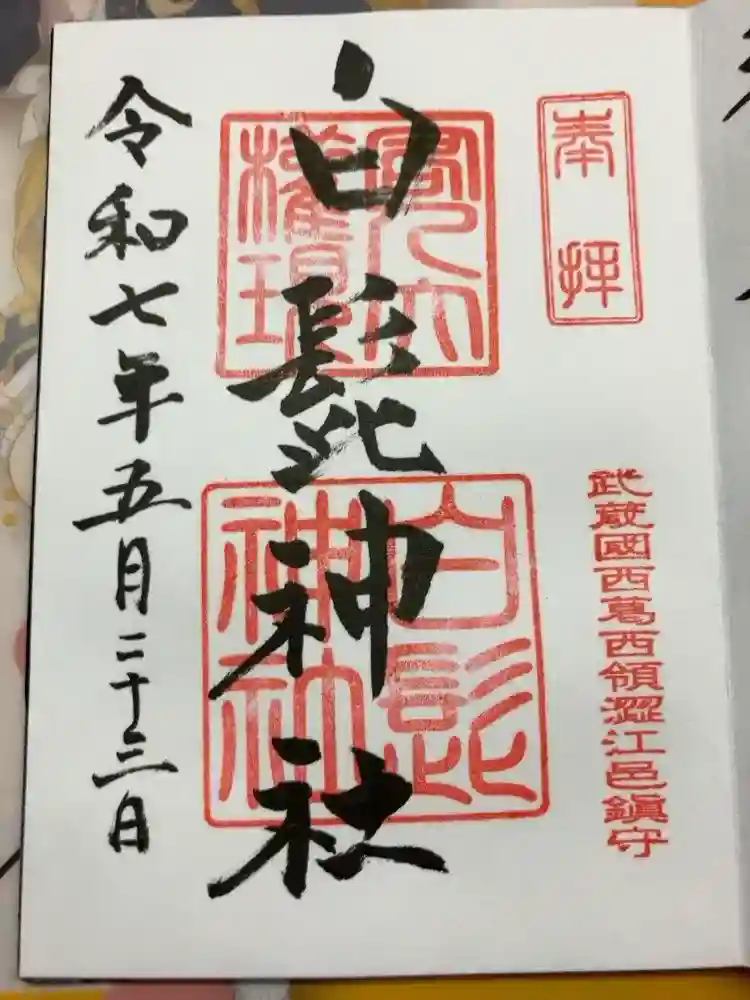 奉拝
武蔵國西葛西領澀江邑鎮守
白髭神社
白髭神社
令和七年五月二十三日